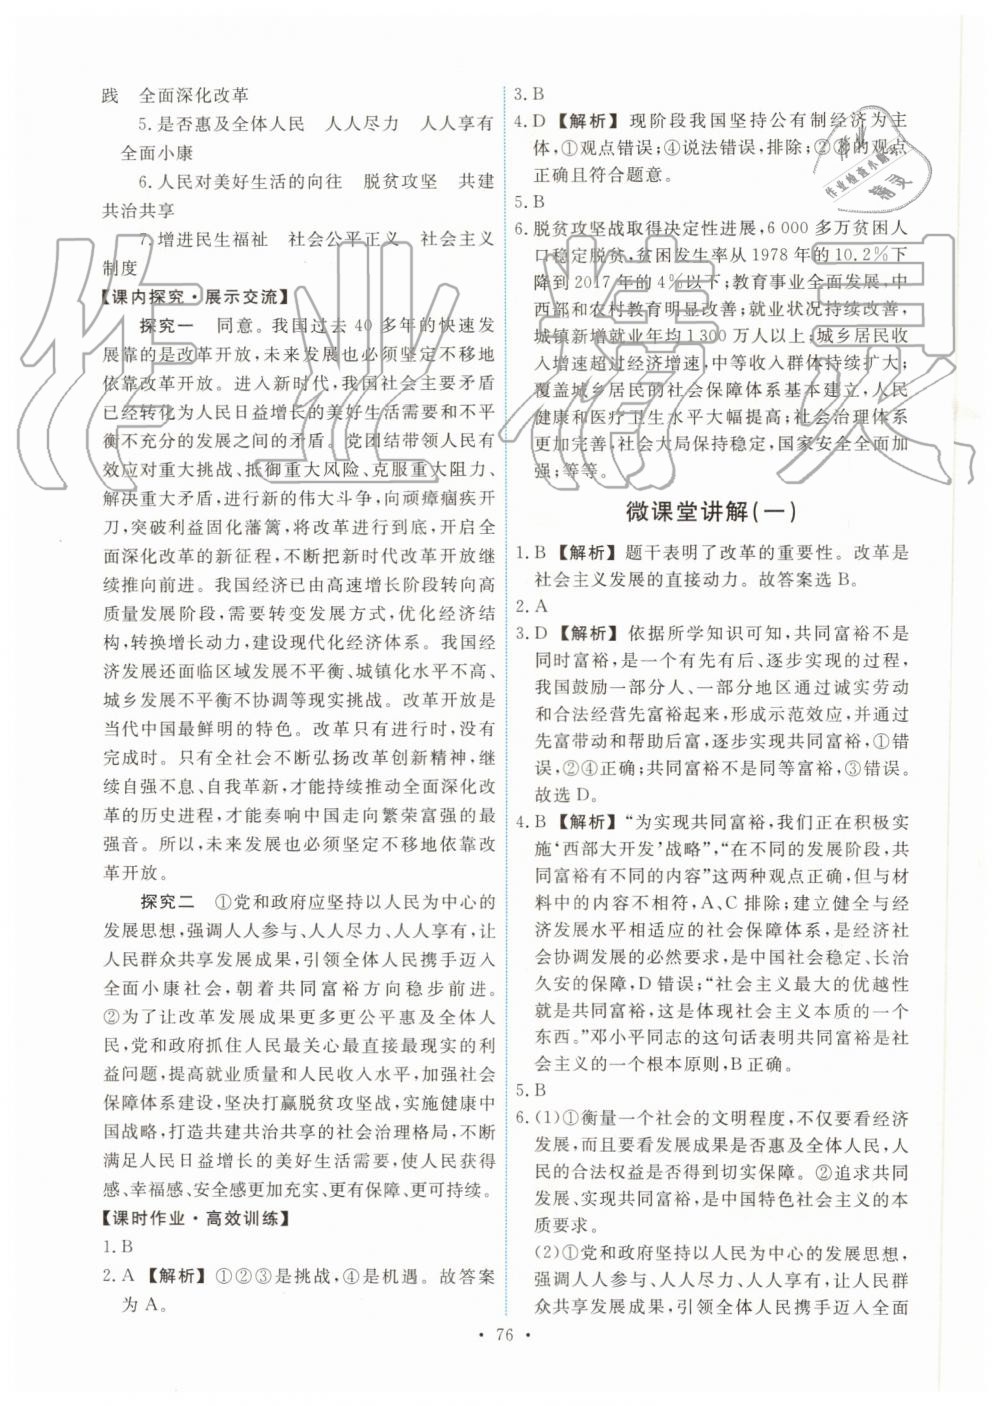 践　全面深化改革
5.是否惠及全体人民　人人尽力　人人享有
全面小康
6.人民对美好生活的向往　脱贫攻坚　共建
共治共享
7.增进民生福祉　社会公平正义　社会主义
制度
【课内探究·展示交流】
探究一　同意。我国过去 40 多年的快速发
展靠的是改革开放,未来发展也必须坚定不移地
依靠改革开放。进入新时代,我国社会主要矛盾
已经转化为人民日益增长的美好生活需要和不平
衡不充分的发展之间的矛盾。党团结带领人民有
效应对重大挑战、抵御重大风险、克服重大阻力、
解决重大矛盾,进行新的伟大斗争,向顽瘴痼疾开
刀,突破利益固化藩篱,将改革进行到底,开启全
面深化改革的新征程,不断把新时代改革开放继
续推向前进。我国经济已由高速增长阶段转向高
质量发展阶段,需要转变发展方式,优化经济结
构,转换增长动力,建设现代化经济体系。我国经
济发展还面临区域发展不平衡、城镇化水平不高、
城乡发展不平衡不协调等现实挑战。改革开放是
当代中国最鲜明的特色。改革只有进行时,没有
完成时。只有全社会不断弘扬改革创新精神,继
续自强不息、自我革新,才能持续推动全面深化改
革的历史进程,才能奏响中国走向繁荣富强的最
强音。所以,未来发展也必须坚定不移地依靠改
革开放。
探究二　①党和政府应坚持以人民为中心的
发展思想,强调人人参与、人人尽力、人人享有,让
人民群众共享发展成果,引领全体人民携手迈入
全面小康社会,朝着共同富裕方向稳步前进。
②为了让改革发展成果更多更公平惠及全体人
民,党和政府抓住人民最关心最直接最现实的利
益问题,提高就业质量和人民收入水平,加强社会
保障体系建设,坚决打赢脱贫攻坚战,实施健康中
国战略,打造共建共治共享的社会治理格局,不断
满足人民日益增长的美好生活需要,使人民获得
感、幸福感、安全感更加充实、更有保障、更可持续。
【课时作业·高效训练】
1. B
2. A 【解析】 ①②③是挑战,④是机遇。故答案
为 A。
3. B
4. D 【解析】 现阶段我国坚持公有制经济为主
体,①观点错误;④说法错误,排除;②③的观点
正确且符合题意。
5. B
6. 脱贫攻坚战取得决定性进展,6 000 多万贫困人
口稳定脱贫,贫困发生率从 1978 年的 10.2%下
降到 2017 年的 4%以下;教育事业全面发展,中
西部和农村教育明显改善;就业状况持续改善,
城镇新增就业年均 1 300 万人以上;城乡居民收
入增速超过经济增速,中等收入群体持续扩大;
覆盖城乡居民的社会保障体系基本建立,人民
健康和医疗卫生水平大幅提高;社会治理体系
更加完善,社会大局保持稳定,国家安全全面加
强;等等。
微课堂讲解(一)
1. B 【解析】 题干表明了改革的重要性。改革是
社会主义发展的直接动力。故答案选 B。
2. A
3. D 【解析】 依据所学知识可知,共同富裕不是
同时富裕,是一个有先有后、逐步实现的过程,
我国鼓励一部分人、一部分地区通过诚实劳动
和合法经营先富裕起来,形成示范效应,并通过
先富带动和帮助后富,逐步实现共同富裕,①错
误,②④正确;共同富裕不是同等富裕,③错误。
故选 D。
4. B 【解析】 “为实现共同富裕,我们正在积极实
施‘西部大开发’战略”,“在不同的发展阶段,共
同富裕的内容不同”这两种观点正确,但与材
料中的内容不相符,A、C 排除;建立健全与经
济发展水平相适应的社会保障体系,是经济社
会协调发展的必然要求,是中国社会稳定、长治
久安的保障,D 错误;“社会主义最大的优越性
就是共同富裕,这是体现社会主义本质的一个
东西。”邓小平同志的这句话表明共同富裕是社
会主义的一个根本原则,B 正确。
5. B
6. (1)①衡量一个社会的文明程度,不仅要看经济
发展,而且要看发展成果是否惠及全体人民,人
民的合法权益是否得到切实保障。②追求共同
发展、实现共同富裕,是中国特色社会主义的本
质要求。
(2)①党和政府坚持以人民为中心的发展思想,
强调人人参与、人人尽力、人人享有,让人民群
众共享发展成果,引领全体人民携手迈入全面
· 76 ·
作业精灵
作业检查小助手
精灵